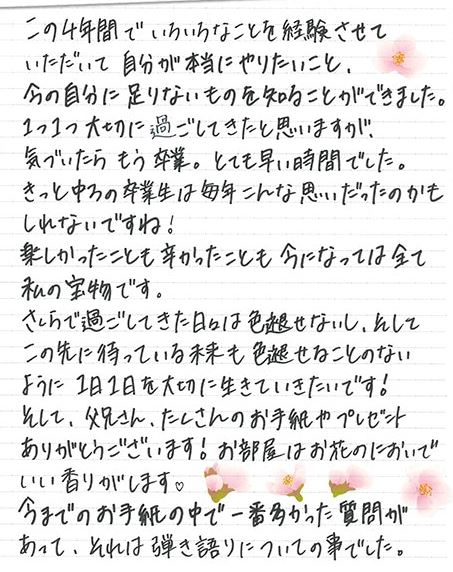 この4年間でいろいろなことを経験させて
いただいて 自分が本当にやりたいこと、
今の自分に足りないものを知ることができました。
1つ1つ大切に過ごしてきたと思いますが、
気づいたらもう卒業。とても早い時間でした。
きっと中3の卒業生は毎年こんな思いだったのかも
しれないですね！
楽しかったことも辛かったことも今になっては全て
私の宝物です。
さくらで過ごしてきた日々は色褪せないし、そして
この先に待っている未来も色褪せることのない
ように1日1日を大切に生きていきたいです！
そして、父兄さん、たくさんのお手紙やプレゼント
ありがとうございます！お部屋はお花のにおいで
いい香りがします♡
今までのお手紙の中で一番多かった質問が
あって、それは弾き語りについての事でした。